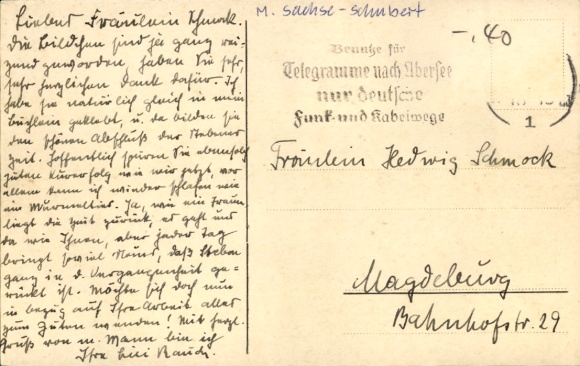 Liebes Fräulein Schmock.
Die Bildchen sind ja ganz rei-
zend geworden, haben Sie sehr,
sehr herzlichen Dank dafür. Ich
habe sie natürlich gleich in mein
Büchlein geklebt, u. da bilden sie
den schönen Abschluß der Stebener
Zeit. Hoffentlich spüren Sie ebensolch
guten Kurerfolg wie wir jetzt, vor
allem kann ich wieder schlafen wie
ein Murmeltier. Ja, wie ein Traum
liegt die Zeit zurück, es geht uns
da wie Ihnen, aber jeder Tag
bringt soviel Neues, daß Steben
ganz in d. Vergangenheit ge-
rückt ist. Möchte sich doch nun
in bezug auf Ihre Arbeit alles
zum Guten wenden! Mit herzl.
Gruß von m. Mann bin ich
Ihre
M. Sachse-Schubert
-,40
Benutze für
Telegramme nach Übersee
nur deutsche
Funk- und Kabelwege
1
Fräulein Hedwig Schmock
Magdeburg
Bahnhofstr. 29